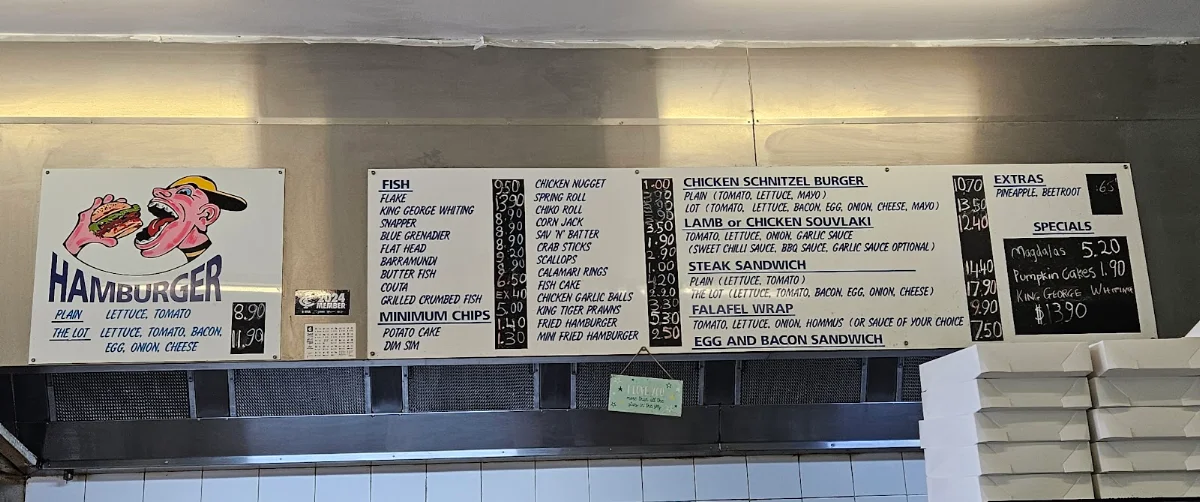 HAMBURGER
PLAIN LETTUCE, TOMATO 8.90
THE LOT LETTUCE, TOMATO, BACON, 11.90
EGG, ONION, CHEESE
2024
FISH 9.50
FLAKE
KING GEORGE WHITING
SNAPPER 8.90
BLUE GRENADIER 8.90
FLAT HEAD 8.90
BARRAMUNDI 9.20
BUTTER FISH 8.90
COUTA 6.50
GRILLED CRUMBED FISH EX 40
MINIMUM CHIPS 5.00
POTATO CAKE 1.40
DIM SIM 1.30
CHICKEN NUGGET 1.00
SPRING ROLL
CHIKO ROLL
CORN JACK 3.50
SAV 'N' BATTER
CRAB STICKS 1.90
SCALLOPS
CALAMARI RINGS 1.00
FISH CAKE
CHICKEN GARLIC BALLS
KING TIGER PRAWNS
FRIED HAMBURGER
MINI FRIED HAMBURGER 2.50
CHICKEN SCHNITZEL BURGER
PLAIN (TOMATO, LETTUCE, MAYO) 10.70
LOT (TOMATO, LETTUCE, BACON, EGG, ONION, CHEESE, MAYO) 13.50
LAMB or CHICKEN SOUVLAKI 12.40
TOMATO, LETTUCE, ONION, GARLIC SAUCE
(SWEET CHILLI SAUCE, BBQ SAUCE, GARLIC SAUCE OPTIONAL)
STEAK SANDWICH
PLAIN (LETTUCE, TOMATO) 14.40
THE LOT (LETTUCE, TOMATO, BACON, EGG, ONION, CHEESE) 17.90
FALAFEL WRAP
TOMATO, LETTUCE, ONION, HOMMUS (OR SAUCE OF YOUR CHOICE 9.90
EGG AND BACON SANDWICH 7.50
EXTRAS
PINEAPPLE, BEETROOT .65
SPECIALS
Magdalas 5.20
Pumpkin Cakes 1.90
KING GEORGE WHITING
$13.90
I LOVE YOU
more than all the
stars in the sky